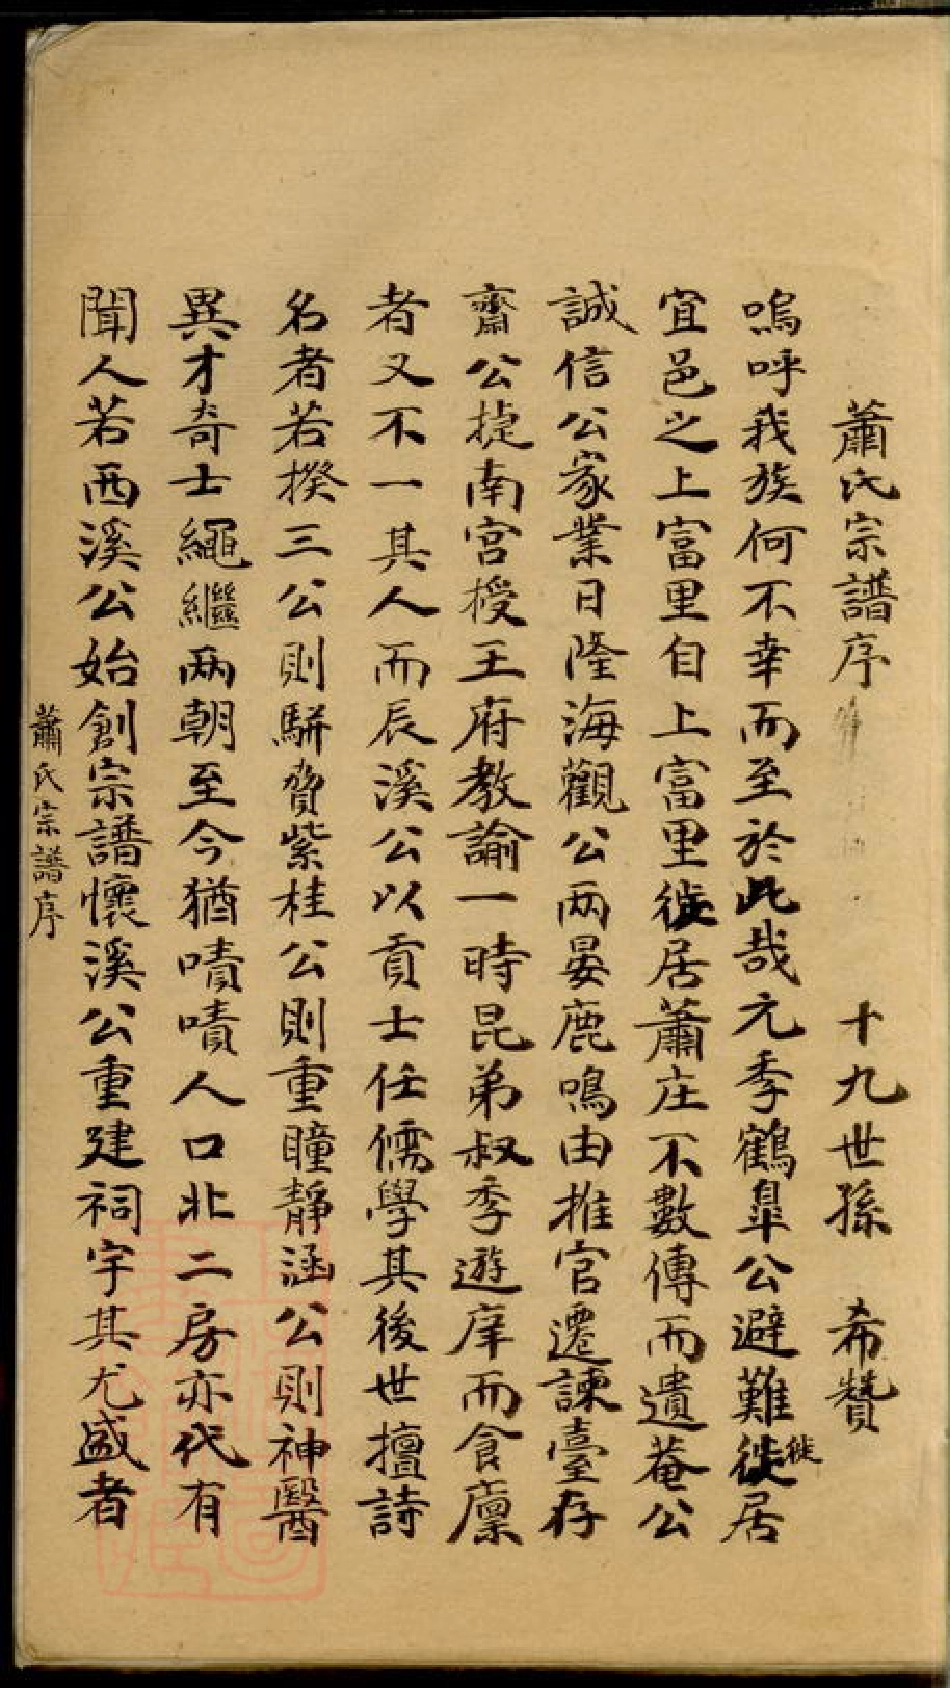 蕭氏宗譜序 十九世孫 希贊
嗚呼我族何不幸而至於此哉元季鶴臯公避難徙居
徙
宜邑之上富里自上富里徙居蕭庄不數傳而遺菴公
誠信公家業日隆海觀公兩晏鹿鳴由推官遷諫臺存
齋公捷南宮授王府教諭一時昆弟叔季遊庠而食廩
者又不一其人而辰溪公以貢士任儒學其後世擅詩
名者若揆三公則駢賁紫桂公則重瞳靜涵公則神醫
異才奇士繩繼兩朝至今猶嘖嘖人口北二房亦代有
聞人若西溪公始創宗譜懷溪公重建祠宇其尤盛者
蕭氏宗譜序